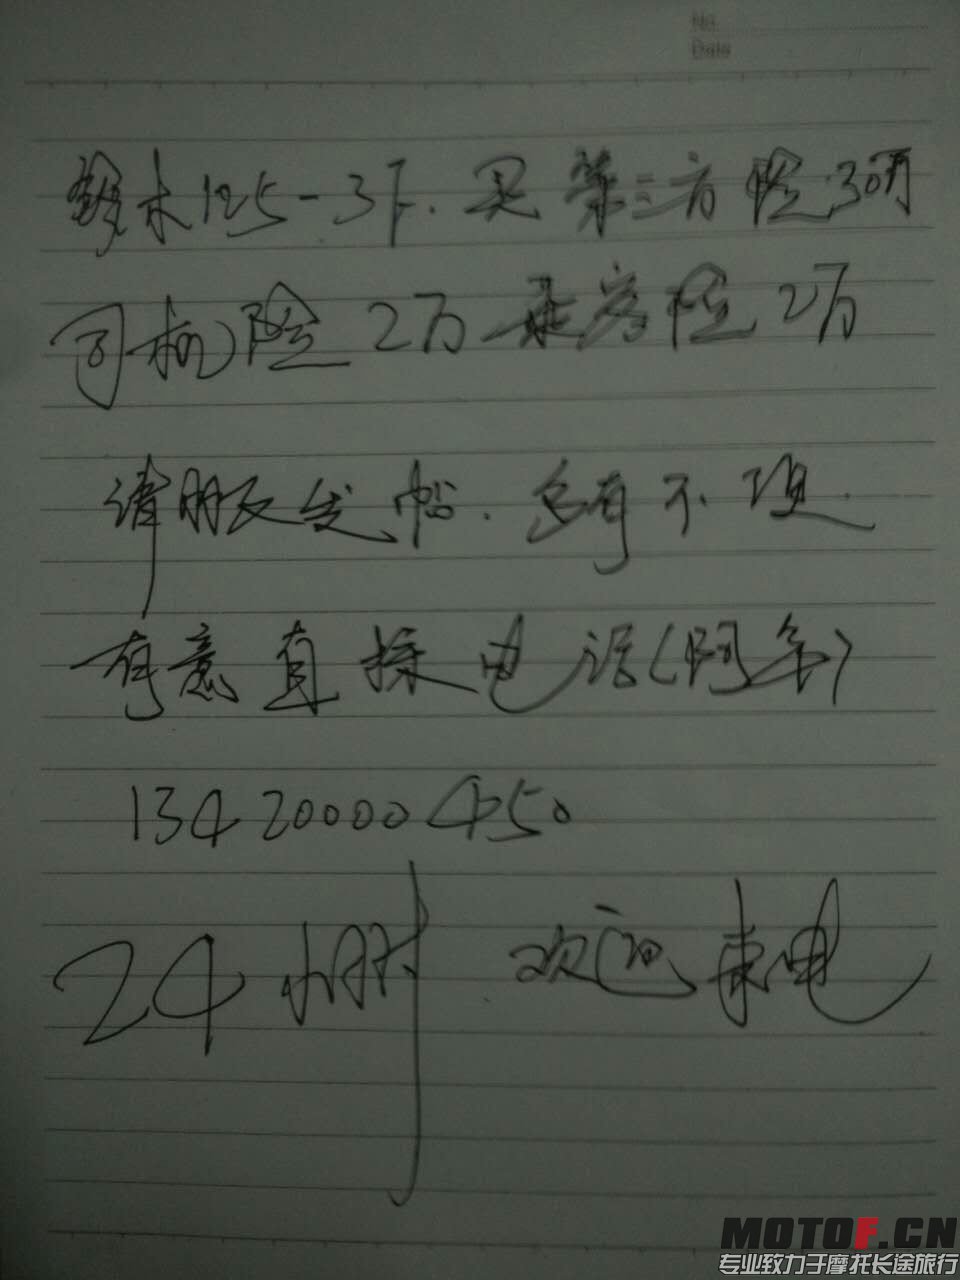 No.
Date
铃木125-3F.买第三方险30万
司机险2万乘客险2万
请朋友发帖.总有不便.
有意直接电话(阿年)
13420000450
24小时 欢迎来电
MOTOF.CN
专业致力于摩托长途旅行